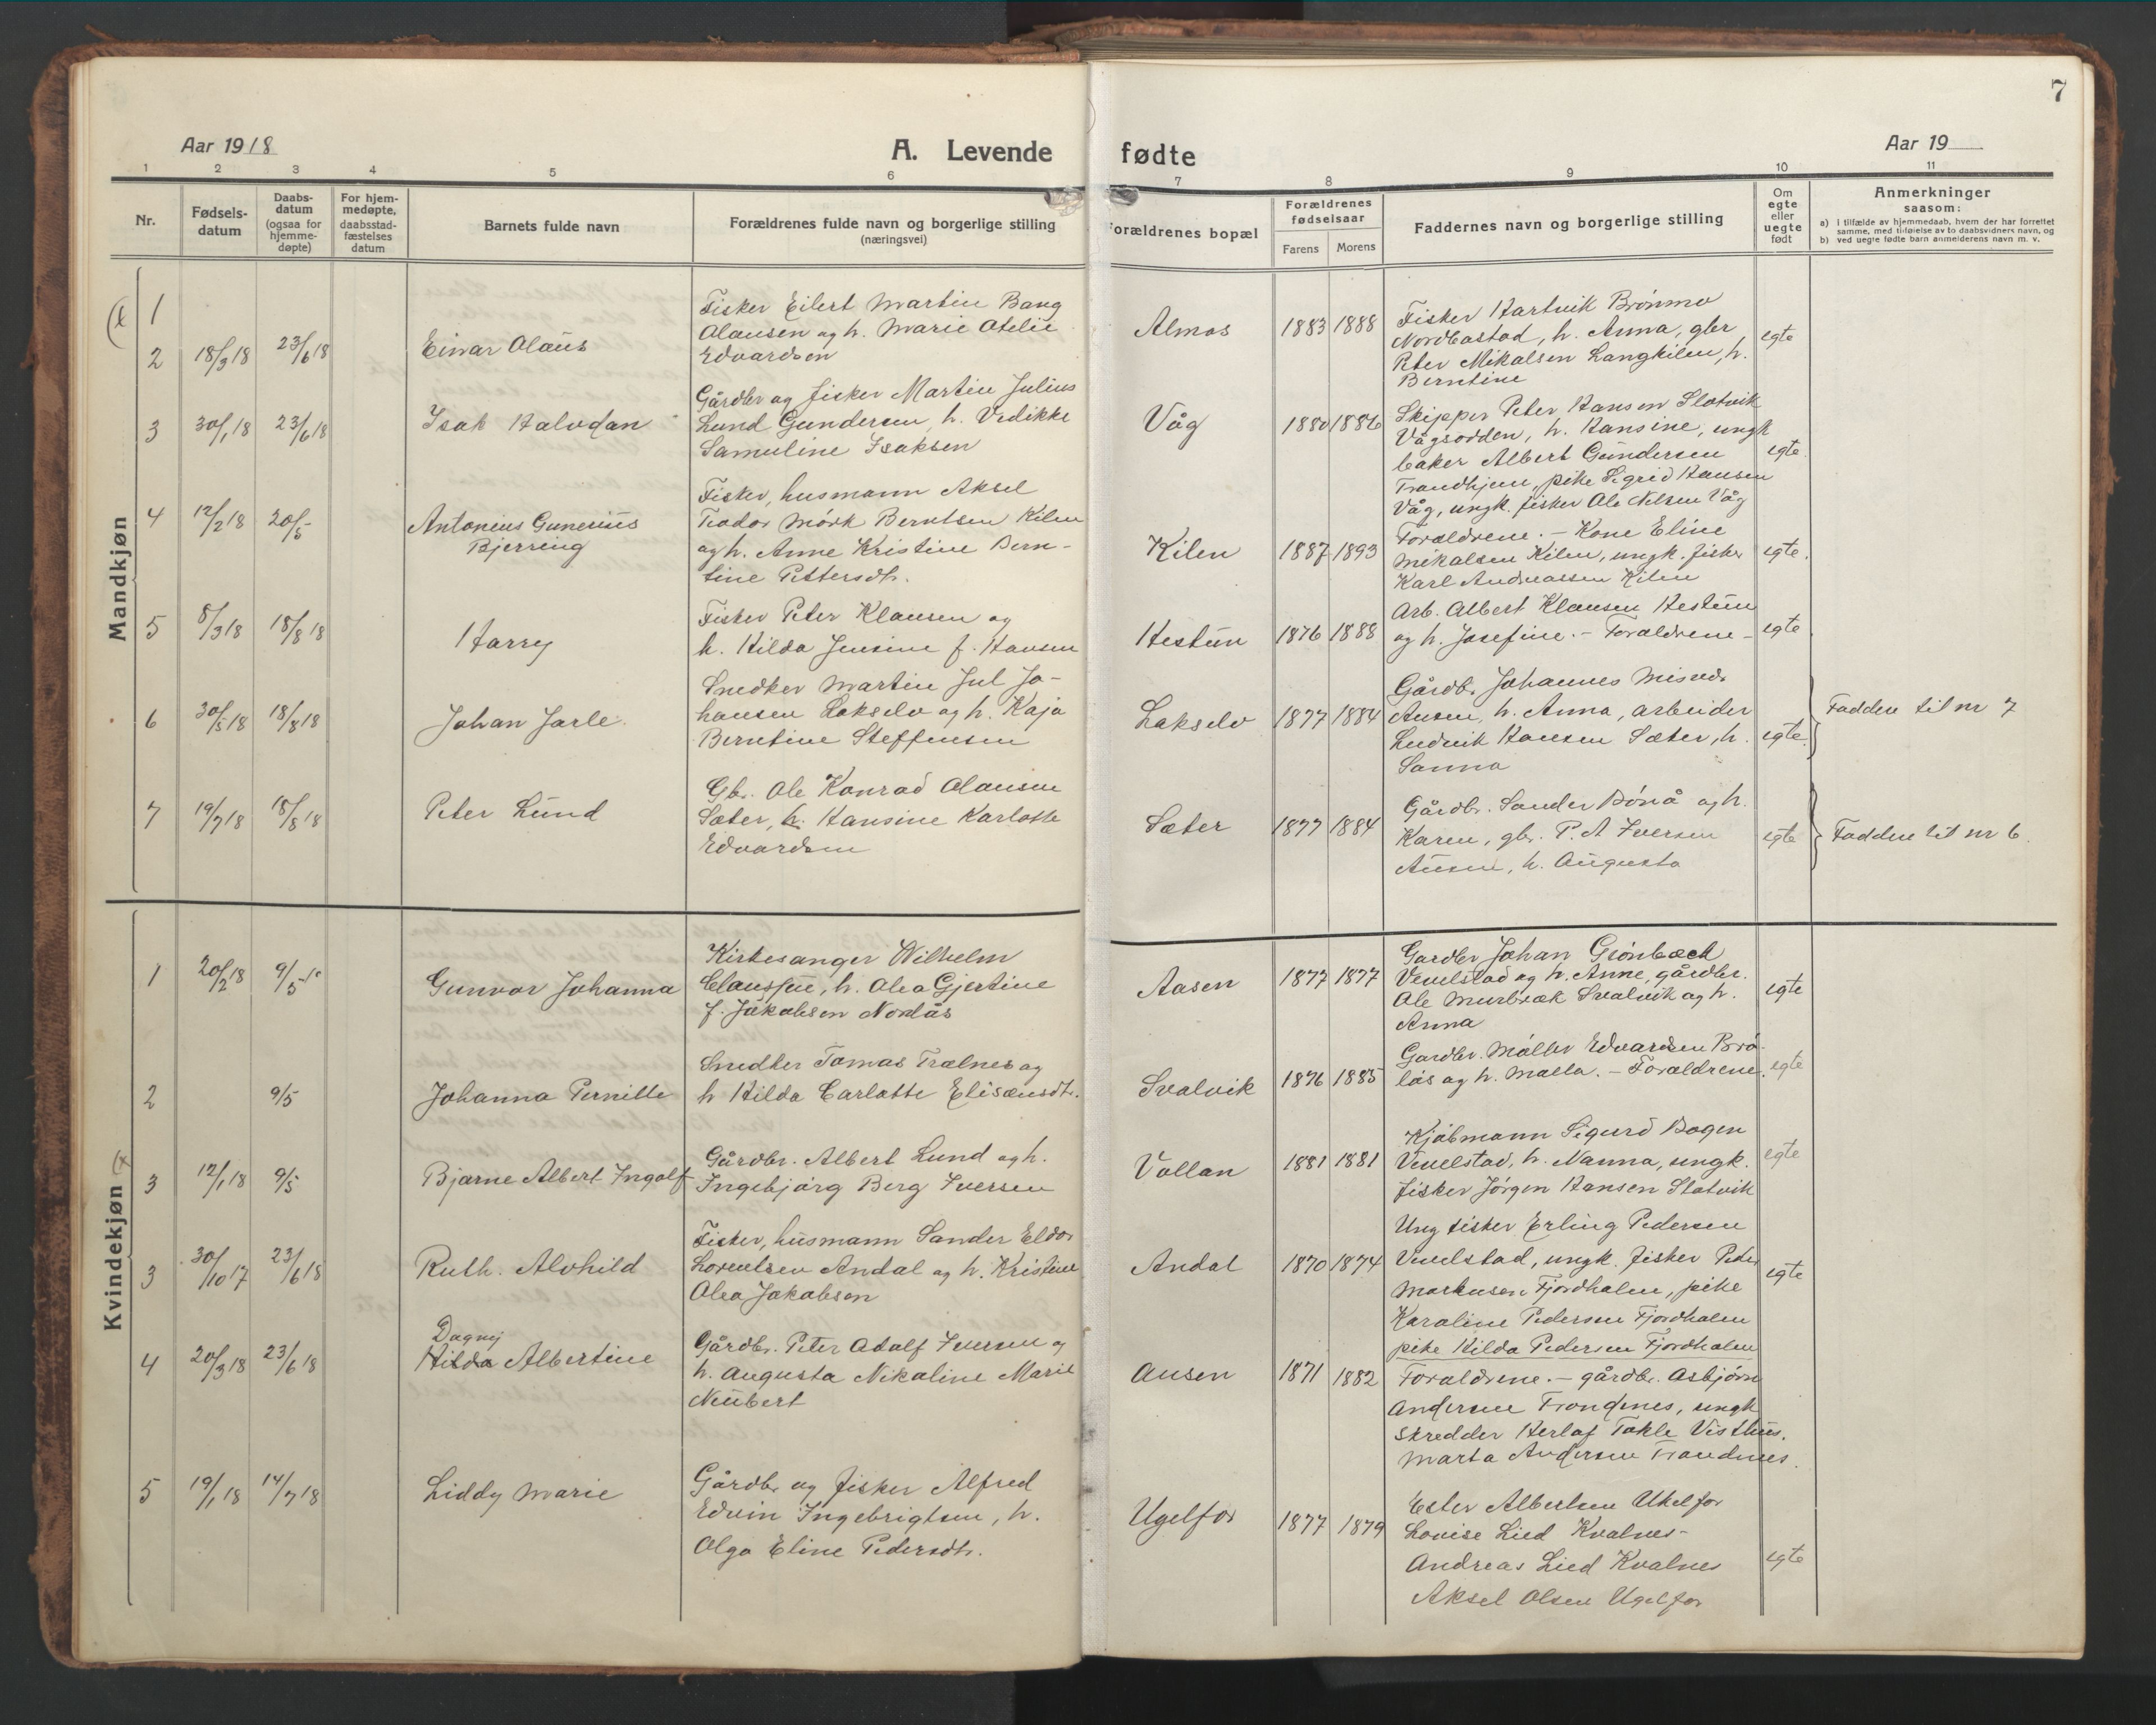 7
Aar 1918
A. Levende
fødte
Aar 19
1 2 3 4 5 6 7 8 9 10 11
Nr.
Fødsels-
datum
Daabs-
datum
(ogsaa for
hjemme-
døpte)
For hjem-
medøpte,
daabsstad-
fæstelses
datum
Barnets fulde navn
Forældrenes fulde navn og borgerlige stilling
(næringsvei)
Forældrenes bopæl
Forældrenes
fødselsaar
Farens
Morens
Faddernes navn og borgerlige stilling
Om
egte
eller
uegte
født
Anmerkninger
saasom:
a) i tilfælde av hjemmedaab, hvem der har forrettet
samme, med tilføielse av to daabsvidners navn, og
b) ved uegte fødte barn anmelderens navn m. v.
Mandkjøn
1
2 18/3 18 23/6 18
Einar Olaus
Fisker Eilert Martin Bang
Olausen og h. Marie Otelie
Edvardsen
Almos 1883 1888
Fisker Hartvik Brønmo
Nordbostad, h. Anna, gbr
Peter Mikalsen Langkilen, h.
Berntine
egte
3 30/1 18 23/6 18
Isak Halvdan
Gårdbr og fisker Martin Julius
Lund Gundersen, h. Vedikke
Samuline Isaksen
Våg 1880 1886
Skipper Peter Hansen Slotvik
Vågsodden, h. Hansine, ungk
baker Albert Gundersen
Trondhjem, pike Sigrid Hansen
Våg, ungk. fisker Ole Nilsen Våg
egte
4 12/2 18 20/5 -
Antonius Gunerius
Bjerring
Fisker, husmann Aksel
Teodor Mørk Berntsen Kilen
og h. Anne Kristine Bern-
tine Pettersdtr.
Kilen 1887 1893
Forældrene. - Kone Eline
Mikalsen Kilen, ungk. fisker
Karl Andreassen Kilen
egte.
5 8/3 18 18/8 18
Harry
Fisker Peter Klausen og
h. Hilda Jensine f. Hansen
Hestun 1876 1888
Arb. Albert Klausen Hestun
og h. Josefine. - Forældrene -
egte
6 30/5 18 18/8 18
Johan Jarle.
Snedker Martin Jul Jo-
hansen Lakselv og h. Kaja
Berntine Steffensen
Lakselv 1877 1884
Gårdbr. Johannes
Ausen, h. Anna, arbeider
Ludvik Hansen Sæter, h.
Sanna
egte.
Faddere til nr 7
7 19/7 18 18/8 18
Peter Lund
Gbr. Ole Konrad Olausen
Sæter, h. Hansine Karlotte
Edvardsen
Sæter 1877 1884
Gårdbr. Sander Bönå og h.
Karen, gbr. P. A Iversen
Ausen, h. Augusta
egte
Faddere til nr 6.
Kvindekjøn
1 20/2 18 9/5
Gunvor Johanna
Kirkesanger Wilhelm
Claussen, h. Alea Gjertine
f. Jakobsen Nordås
Aasen 1877 1877
Gardbr Johan Grönbæck
Vevelstad og h. Anne, gårdbr.
Ole Murbræk Svalvik og h.
Anna
egte
2 9/5
Johanna Pernille
Snedker Tomas Trælnes og
h Hilda Carlotte Elisæusdtr.
Svalvik 1876 1885
Gardbr. Møller Edvardsen Brö-
lös og h. Malla. - Forældrene.
egte
3 12/1 18 9/5
Bjarne Albert Ingolf
Gårdbr. Albert Lund og h.
Ingebjørg Berg Iversen
Vollan 1881 1881
Kjøbmann Sigurd Bogen
Vevelstad, h. Nanna, ungk.
fisker Jörgen Hansen Slotvik
egte
3 30/10 17 23/6 18
Ruth. Alvhild
Fisker, husmann Sander Eldor
Lorentsen Andal og h. Kristine
Olea Jakobsen
Andal 1870 1874
Ung fisker Erling Pedersen
Vevelstad, ungk. fisker Peder
Markusen Fjordholm, pike
Karoline Pedersen Fjordholm
pike Hilda Pedersen Fjordholm
egte
4 20/3 18 23/6 18
Dagny
Hilda Albertine
Gårdbr. Peter Adolf Iversen og
h. Augusta Nikoline Marie
Neubert
Ausen 1871 1882
Forældrene. - gårdbr. Asbjørn
Andersen Trondenes, ungk
skredder Herlof Tokle Visthus.
Marta Andersen Trondenes.
5 19/1 18 14/7 18
Liddy Marie
Gårdbr og fisker Alfred
Edvin Ingebrigtsen, h.
Olga Eline Pedersdtr.
Ugelfor 1877 1879
Ester Albertsen Ukelfor
Lovise Lied Kvalnes -
Andreas Lied Kvalnes
Aksel Olsen Ugelfor
egte